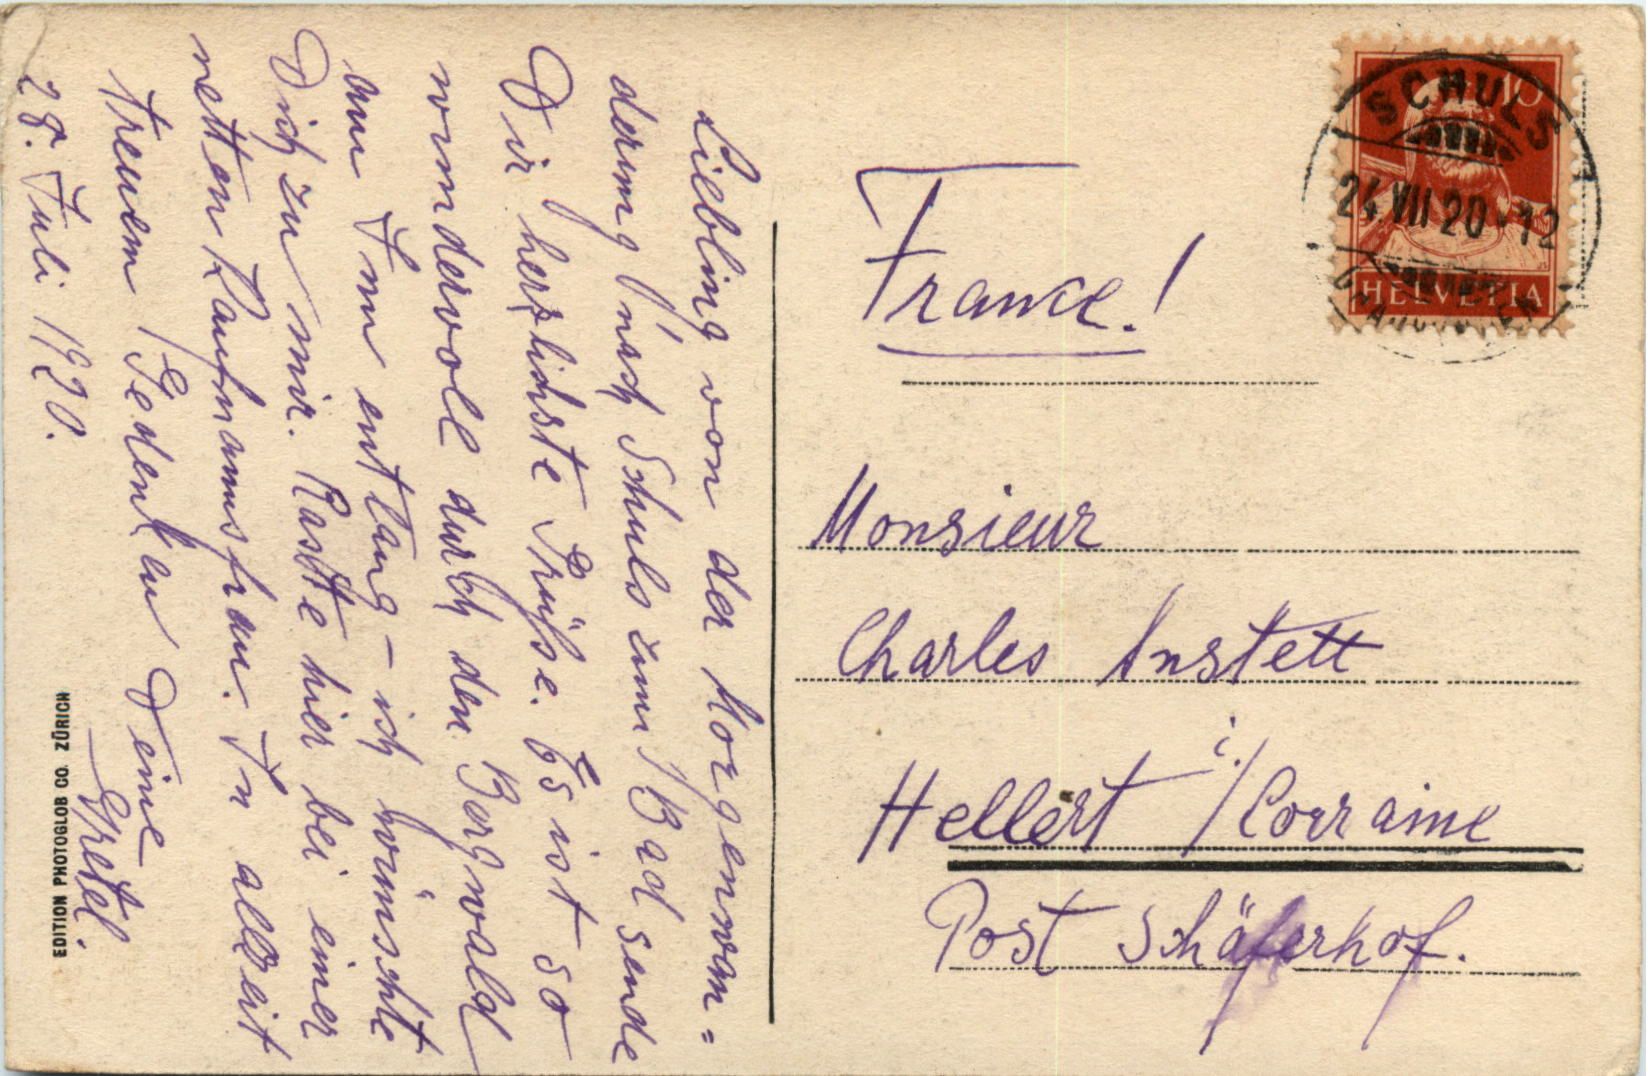 Liebling von der Morgenwan=
derung nach Schuls zum Bad sende
Dir herzlichste Grüße. Es ist so
wundervoll durch den Bergwald
am Inn entlang – ich wünschte
Dich zu mir. Raste hier bei einer
netten Kaufmannsfrau. In allzeit
treuem Gedenken Deine
Gretel.
28. Juli 1920.
EDITION PHOTOGLOB CO. ZÜRICH
France!
Monsieur
Charles Anstett
Hellert i./Lorraine
Post Schäferhof.
10
HELVETIA
SCHULS
24.VII 20-12